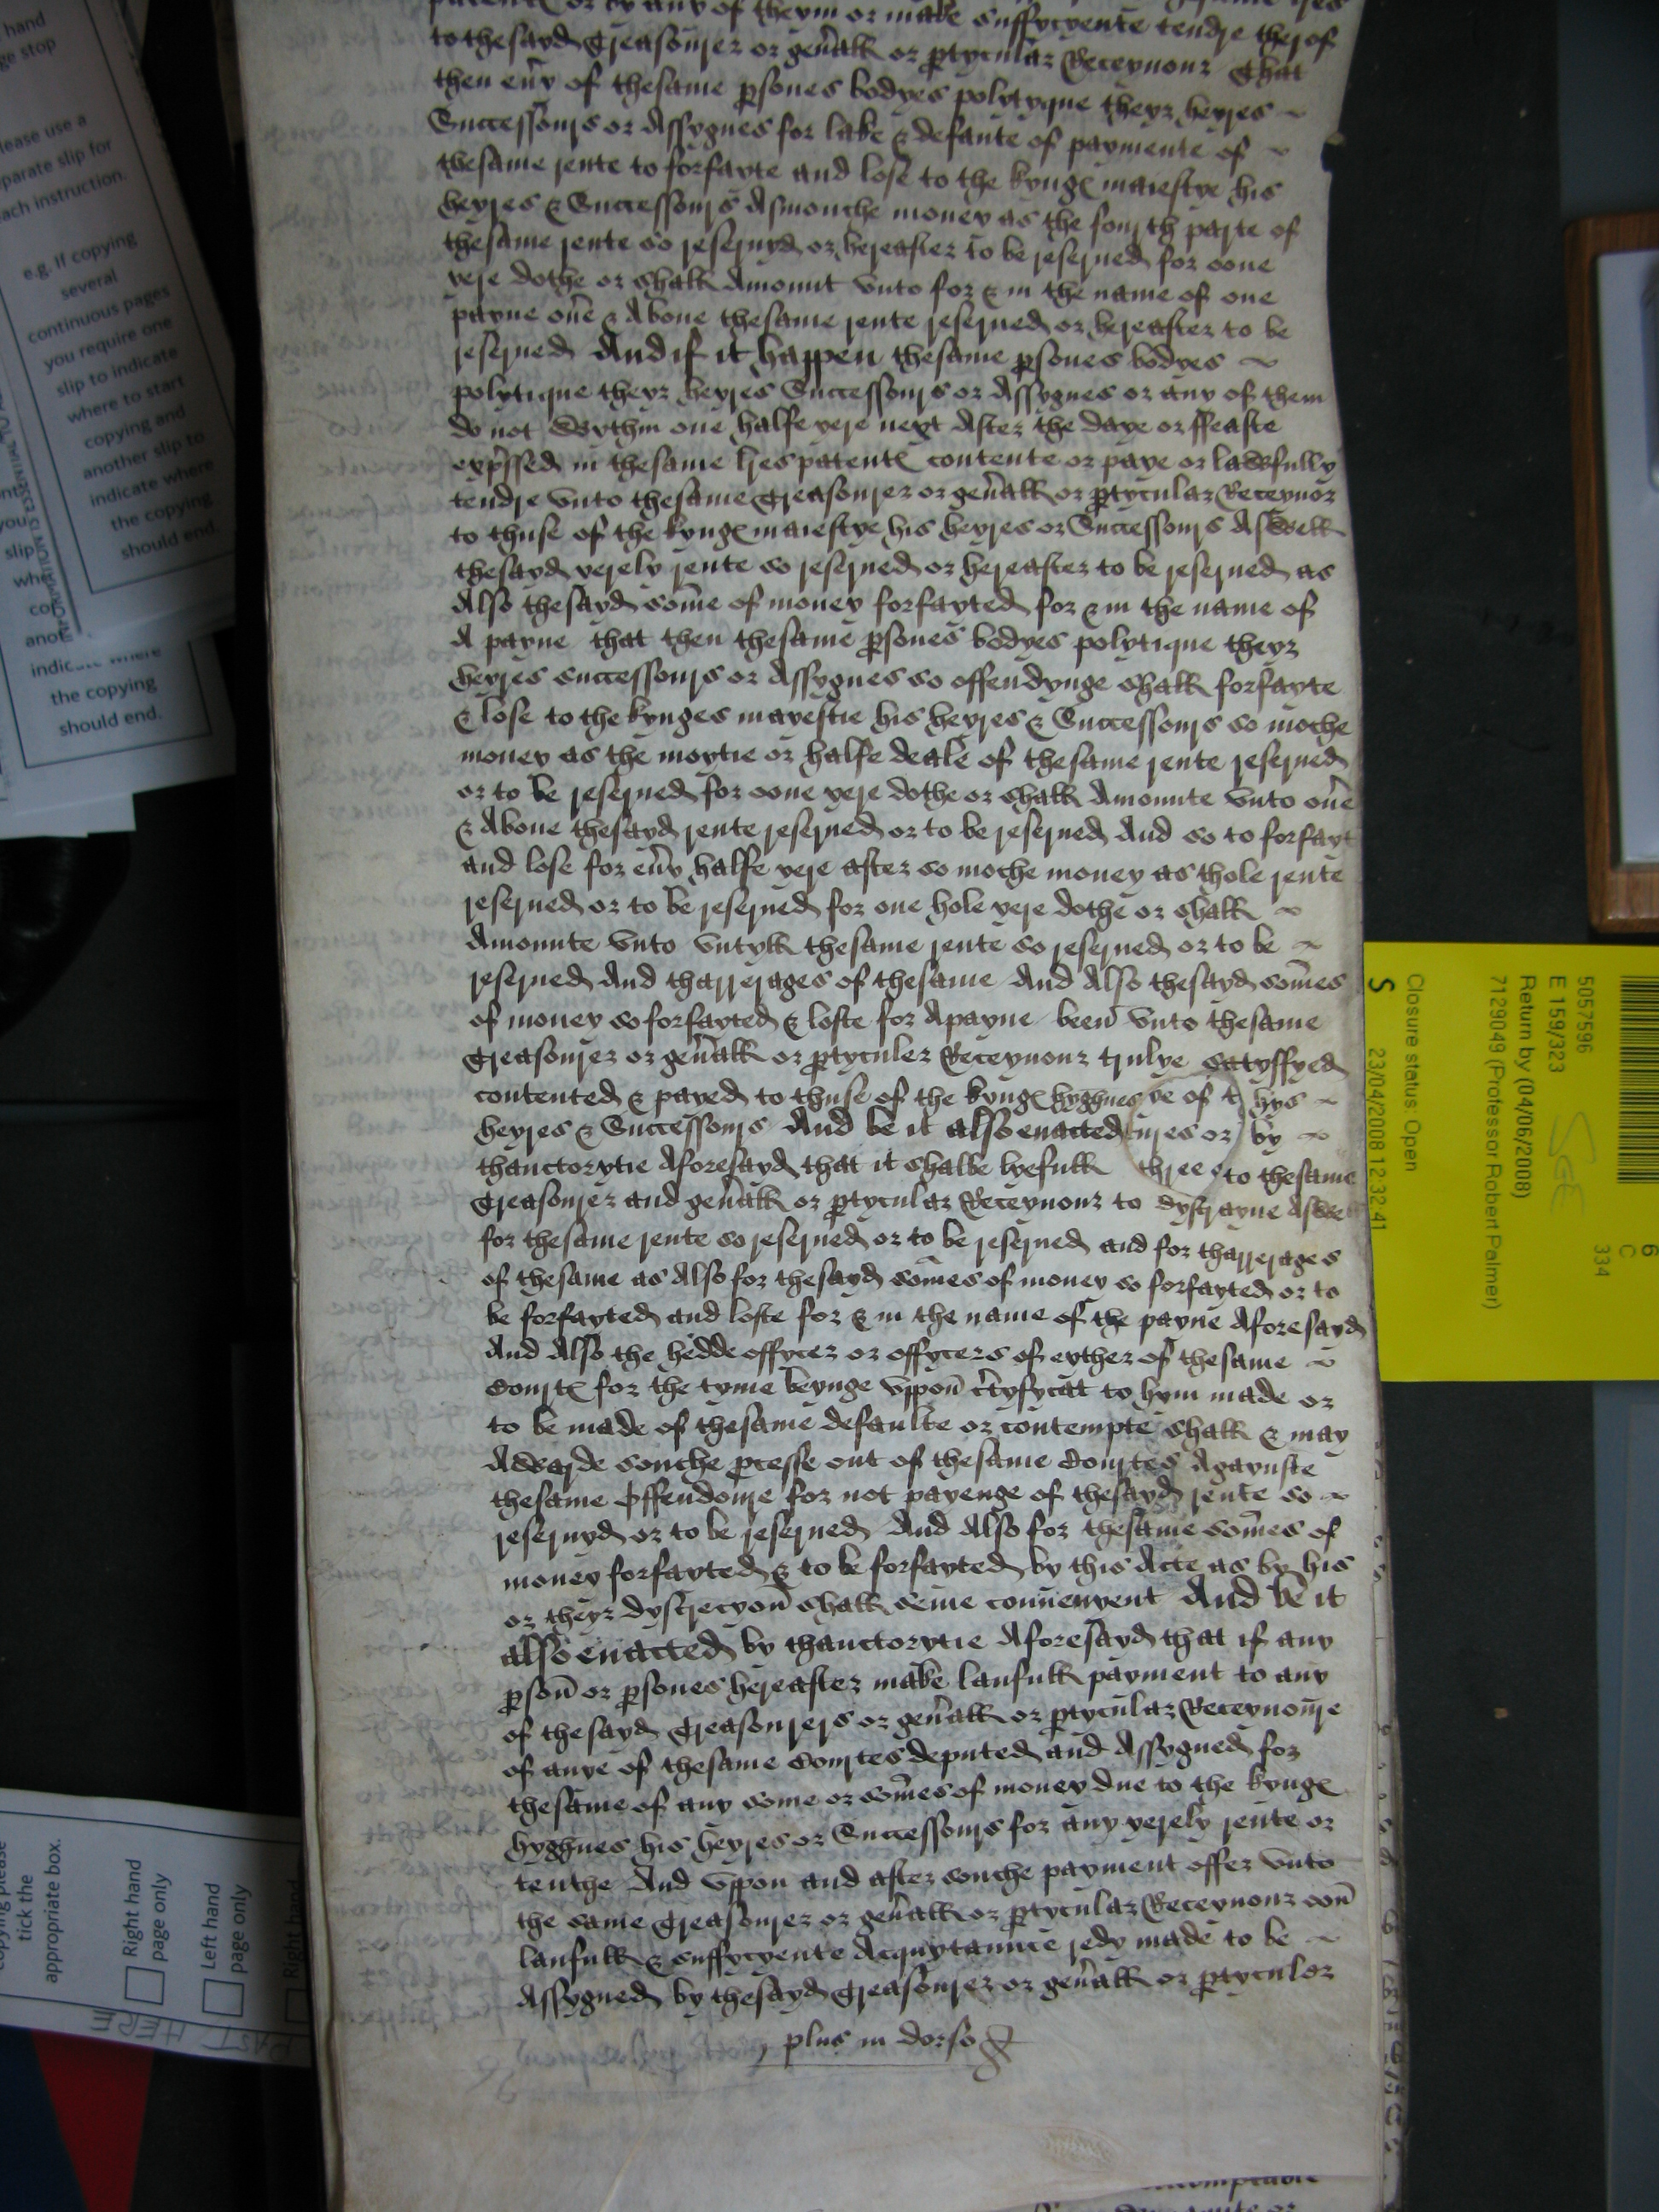 or by any of theym or make suffycyente tendre therof
to thesayd Treasourer or gen'all or p'tycular Receyuour That
then eu'y of thesame p'sones bodyes polytyque theyr heyres
Successours or Assygnes for lake & defaute of paymente of
thesame rente to forfayte and lose to the kyng maiestye his
heyres & Successours Asmouche money as the fourth parte of
thesame rente so reseruyd or hereafter to be reserued for oone
yere dothe or shall Amount vnto for & in the name of one
payne ou'e & Aboue thesame rente reserued or hereafter to be
reserued And if it happen thesame p'sones bodyes
polytique theyr heyres Successours or Assygnes or any of them
do not wythin one halfe yere next After the daye or ffeaste
exp'ssed in thesame l'res patent contente or paye or lawfully
tendre vnto thesame Treasourer or gen'all or p'tycular Receyuor
to thuse of the kyng maiestye his heyres or Successours Aswell
thesayd yerely rente so reserued or hereafter to be reserued as
Also thesayd some of money forfayted for & in the name of
A payne that then thesame p'sones bodyes polytique theyr
heyres successours or Assygnes so offendynge shall forfayte
& lose to the kynges mayestie his heyres & Successours so moche
money as the moytie or halfe deale of thesame rente reserued
or to be reserued for oone yere dothe or shall Amounte vnto ou'e
& Aboue thesayd rente reserued or to be reserued And so to forfayt
and lose for eu'y halfe yere after so moche money as thole rente
reserued or to be reserued for one hole yere dothe or shall
Amounte vnto vntyll thesame rente so reserued or to be
reserued And tharrerages of thesame And Also thesayd somes
of money so forfayted & loste for A payne been vnto thesame
Treasourer or gen'all or p'tyculer Receyuour trulye satysfyed
contented & payed to thuse of the kyng hyghnes hys
heyres & Successours And be it also enacted by
thauctorytie Aforesayd that it shalbe lyefull to thesame
Treasourer and gen'all or p'tycular Receyuour to dystrayne Aswell
for thesame rente so reserued or to be reserued and for tharrerages
of thesame as Also for thesayd somes of money so forfayted or to
be forfayted and loste for & in the name of the payne Aforesayd
And Also the hedde offycer or offycers of eyther of thesame
Court for the tyme beynge vppon c'tyfycat to hym made or
to be made of thesame defaulte or contempte shall & may
Awarde souche p'cesse out of thesame Courtes Agaynste
thesame offendoure for not payenge of thesayd rente so
reseruyd or to be reserued And Also for thesame somes of
money forfayted & to be forfayted by this Acte as by his
or theyr dyscrecyon shall seme conuenyent And be it
also enacted by thauctorytie Aforesayd that if any
p'son or p'sones hereafter make laufull payment to any
of thesayd Treasourers or gen'all or p'tycular Receyuoure
of anye of thesame Courtes deputed and Assygned for
thesame of any some or somes of money due to the kyng
hyghnes his heyres or Successours for any yerely rente or
tenthe And vppon and after souche payment offer vnto
the same Treasourer or gen'all or p'tycular Receyuour oon
laufull & suffycyente Acquytaunce redy made to be
Assygned by thesayd Treasourer or gen'all or p'tyculer
plus in dorso
5057596
E 159/323
Return by (04/06/2008)
7129049 (Professor Robert Palmer)
Closure status: Open
S 23/04/2008 12:32:41
334
C
hand
ge stop
lease use a
parate slip for
ach instruction.
e.g. If copying
several
continuous pages
you require one
slip to indicate
where to start
copying and
another slip to
indicate where
the copying
should end.
indicate where
the copying
should end.
copying please
tick the
appropriate box.
Right hand
page only
Left hand
page only
Right hand